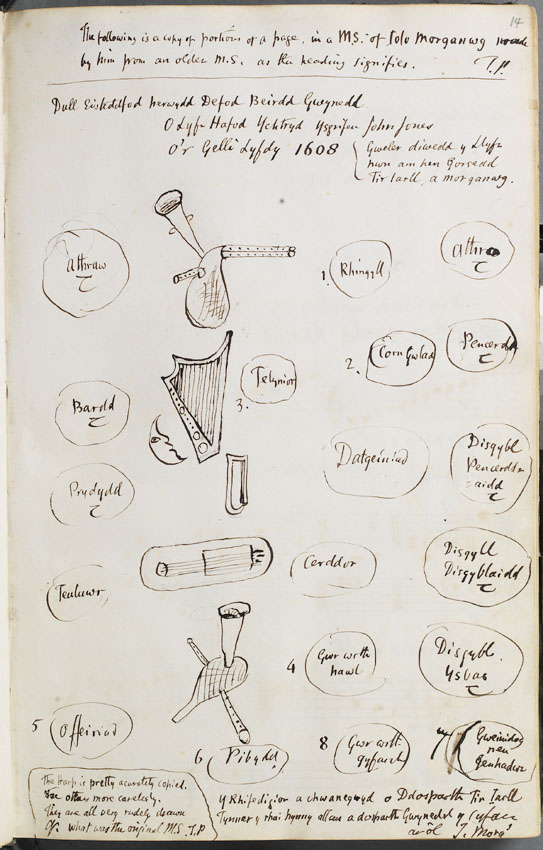 14
The following is a copy of portions of a page, in a M.S. of Iolo Morganwg made
by him from an older M.S. as the heading signifies. T.P.
Dull Eisteddfod herwydd Defod Beirdd Gwynedd
O Lyfr Hafod Ychtryd ysgrifen John Jones
O'r Gelli Lyfdy 1608
Gweler diwedd y Llyfr
hwn am hen Gorsedd
Tir Iarll, a morganwg.
Athraw
1. Rhingyll
Athraw
2. Corn Gwlad
Pencerdd
3. Telynior
Bardd
Datgeiniad
Disgybl
Pencerdd
aidd
Prydydd
Teuluwr
Cerddor
Disgybl
Disgyblaidd
4 Gwr wrth
hawl
Disgybl
Ysbas
5 Offeiriad
6 Pibydd
8 Gwr wrth
gyfarch
7 Gweinidog
neu
Genhadwr
The Harp is pretty accurately copied.
The others more carelessly.
They are all very rudely drawn
in what was the original M.S. T.P
y Rhifedigion a chwanegwyd o Ddosparth Tir Iarll
Tynner y rhai hynny allan a dosparth Gwynedd y
ar ôl I. Morgs